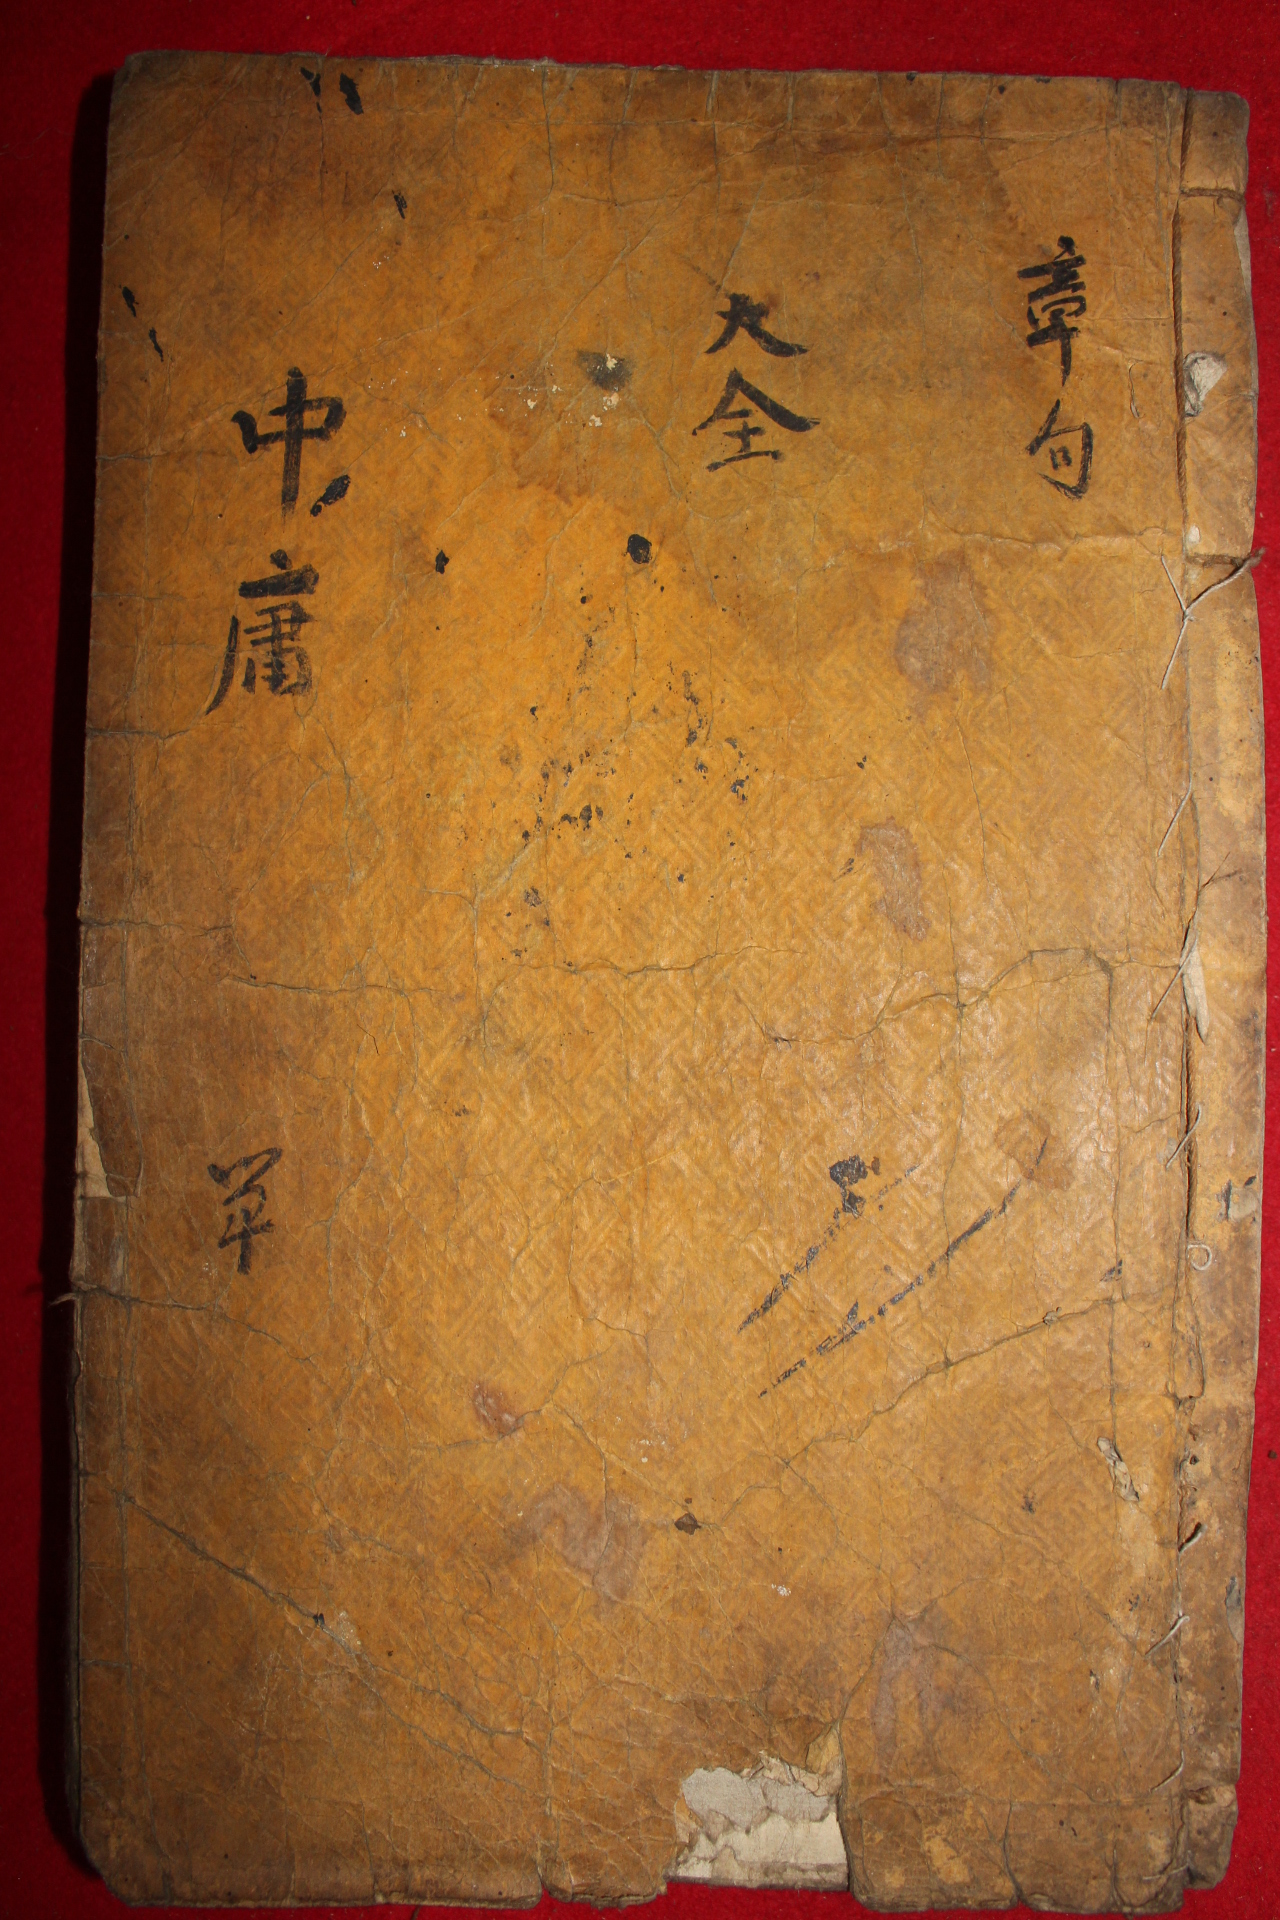 章句
大全
中庸
單